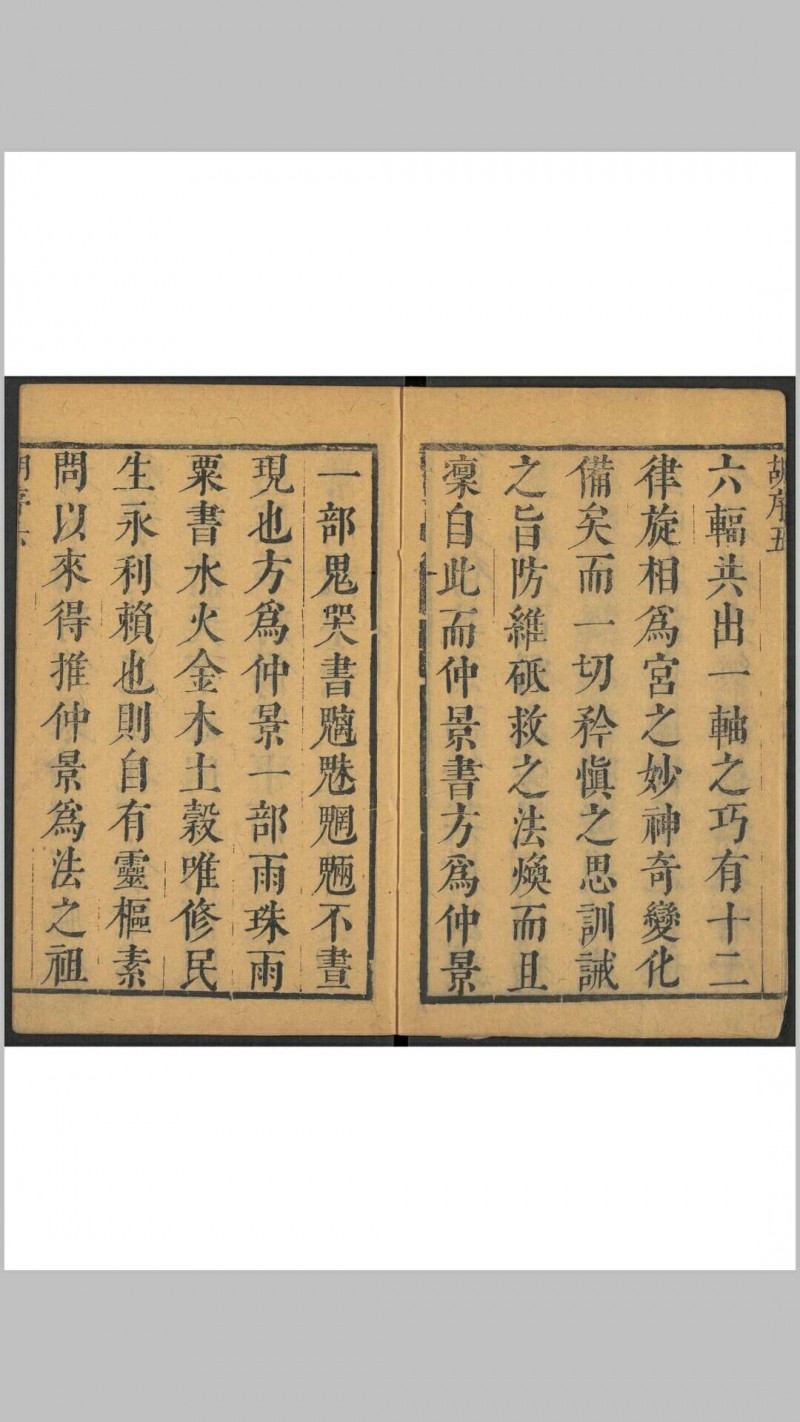 胡序五
六輻共出一軸之巧有十二
律旋相爲宮之妙神奇變化
備矣而一切矜慎之思訓誡
之旨防維砥救之法煥而且
凜自此而仲景書方爲仲景
一部鬼哭書魑魅魍魎不晝
現也方爲仲景一部雨珠雨
粟書水火金木土穀唯修民
生永利賴也則自有靈樞素
問以來得推仲景爲法之祖
胡序六